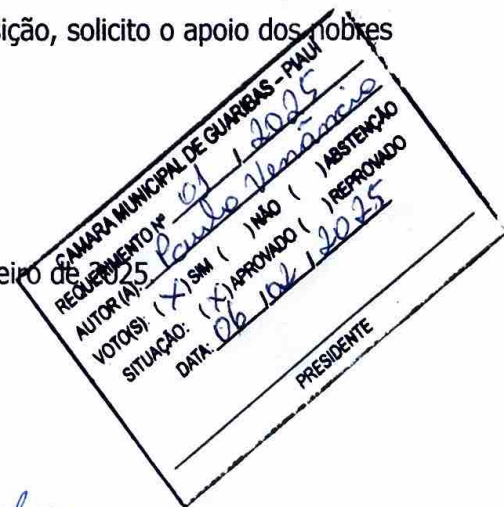 sição, solicito o apoio dos nobres
CAMARA MUNICIPAL DE GUARIBAS - PIAUÍ
REQUERIMENTO Nº 01 / 2025
AUTOR (A): Paulo Venâncio
VOTO(S): (X) SIM ( ) NÃO ( ) ABSTENÇÃO
SITUAÇÃO: (X) APROVADO ( ) REPROVADO
DATA: 06 / 02 / 2025
PRESIDENTE
eiro de 2025